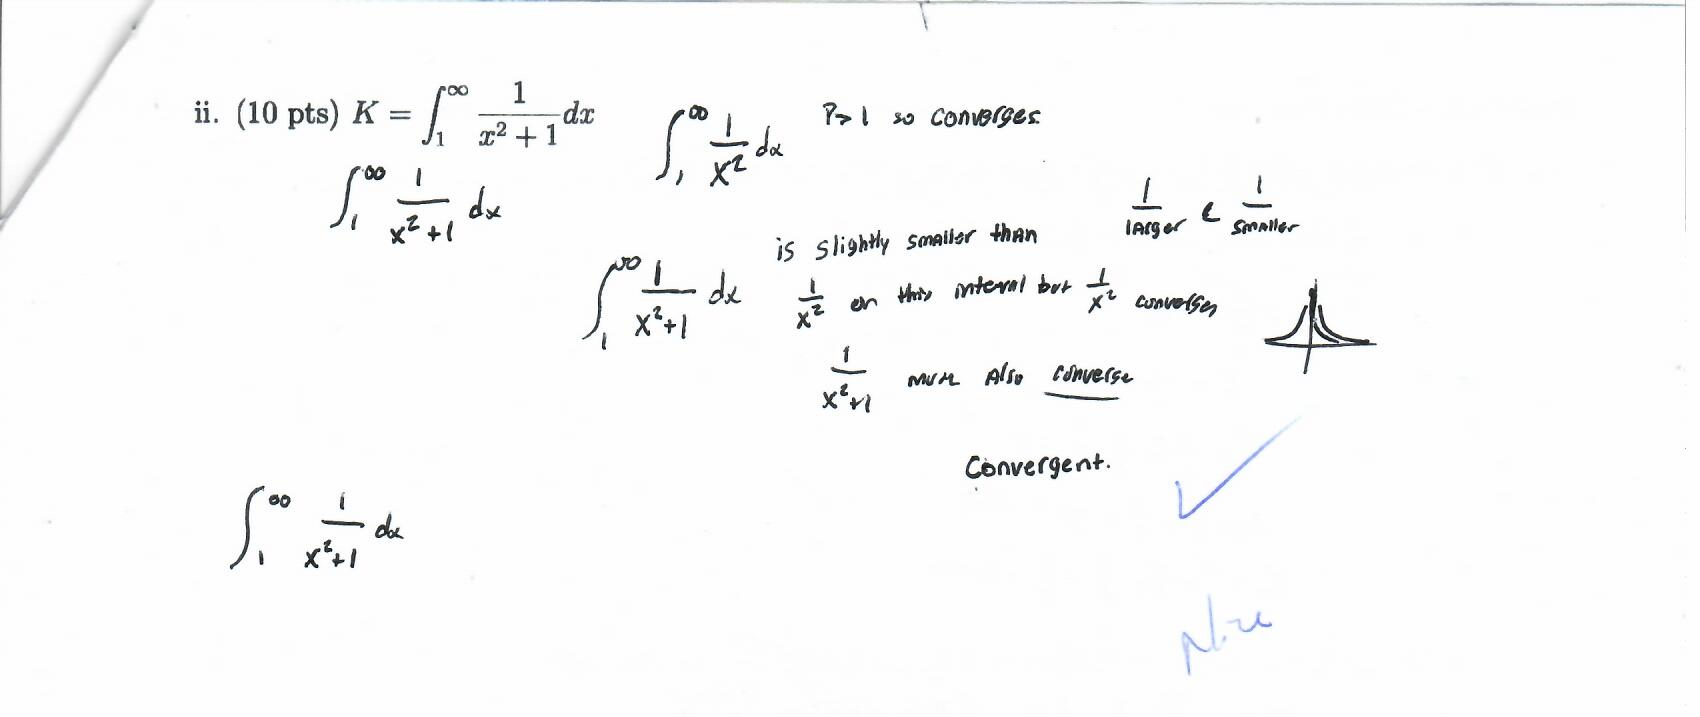 ii. (10 pts) K = ∫₁^∞ 1/(x² + 1) dx
∫₁^∞ 1/x² dx P>1 so converges
∫₁^∞ 1/(x²+1) dx
1/larger < 1/smaller
∫₁^∞ 1/(x²+1) dx is slightly smaller than
1/x² on this interval but 1/x² converges
1/(x²+1) must also converge
Convergent.
∫₁^∞ 1/(x²+1) dx
Nice